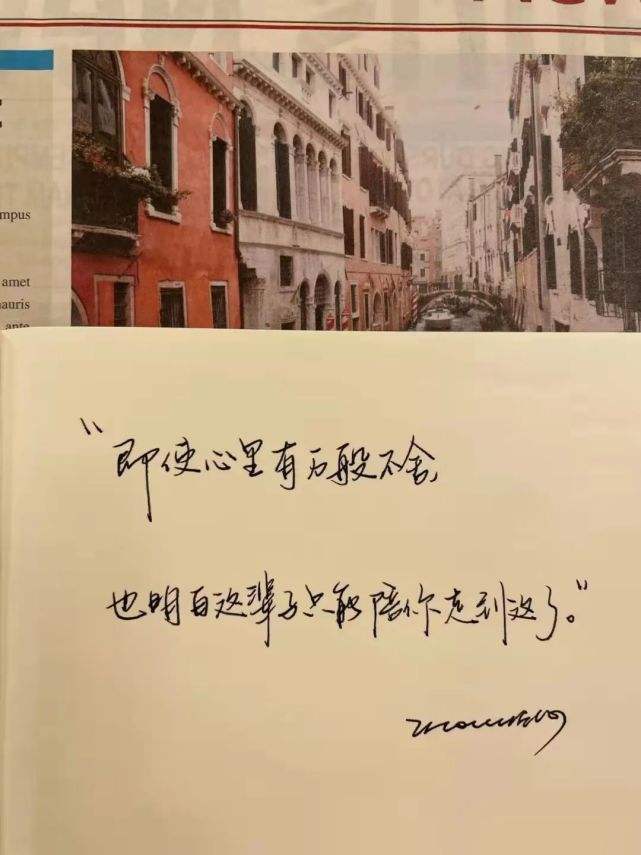 mpus
amet
mauris
ante
“即使心里有万般不舍,
也明白这辈子只能陪你走到这了。”